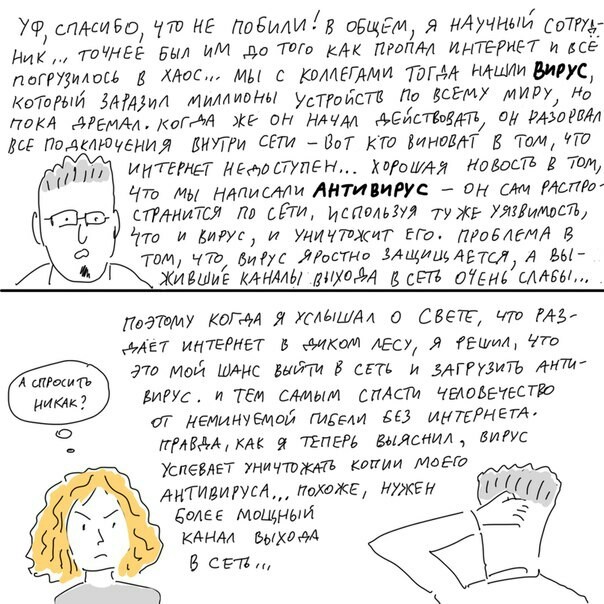 УФ, СПАСИБО, ЧТО НЕ ПОБИЛИ! В ОБЩЕМ, Я НАУЧНЫЙ СОТРУД-
НИК... ТОЧНЕЕ БЫЛ ИМ ДО ТОГО КАК ПРОПАЛ ИНТЕРНЕТ И ВСЁ
ПОГРУЗИЛОСЬ В ХАОС... МЫ С КОЛЛЕГАМИ ТОГДА НАШЛИ ВИРУС,
КОТОРЫЙ ЗАРАЗИЛ МИЛЛИОНЫ УСТРОЙСТВ ПО ВСЕМУ МИРУ, НО
ПОКА ДРЕМАЛ. КОГДА ЖЕ ОН НАЧАЛ ДЕЙСТВОВАТЬ, ОН РАЗОРВАЛ
ВСЕ ПОДКЛЮЧЕНИЯ ВНУТРИ СЕТИ – ВОТ КТО ВИНОВАТ В ТОМ, ЧТО
ИНТЕРНЕТ НЕДОСТУПЕН... ХОРОШАЯ НОВОСТЬ В ТОМ,
ЧТО МЫ НАПИСАЛИ АНТИВИРУС – ОН САМ РАСПРО-
СТРАНИТСЯ ПО СЕТИ, ИСПОЛЬЗУЯ ТУ ЖЕ УЯЗВИМОСТЬ,
ЧТО И ВИРУС, И УНИЧТОЖИТ ЕГО. ПРОБЛЕМА В
ТОМ, ЧТО ВИРУС ЯРОСТНО ЗАЩИЩАЕТСЯ, А ВЫ-
ЖИВШИЕ КАНАЛЫ ВЫХОДА В СЕТЬ ОЧЕНЬ СЛАБЫ...
ПОЭТОМУ КОГДА Я УСЛЫШАЛ О СВЕТЕ, ЧТО РАЗ-
ДАЁТ ИНТЕРНЕТ В ДИКОМ ЛЕСУ, Я РЕШИЛ, ЧТО
ЭТО МОЙ ШАНС ВЫЙТИ В СЕТЬ И ЗАГРУЗИТЬ АНТИ-
ВИРУС. И ТЕМ САМЫМ СПАСТИ ЧЕЛОВЕЧЕСТВО
ОТ НЕМИНУЕМОЙ ГИБЕЛИ БЕЗ ИНТЕРНЕТА.
ПРАВДА, КАК Я ТЕПЕРЬ ВЫЯСНИЛ, ВИРУС
УСПЕВАЕТ УНИЧТОЖАТЬ КОПИИ МОЕГО
АНТИВИРУСА... ПОХОЖЕ, НУЖЕН
БОЛЕЕ МОЩНЫЙ
КАНАЛ ВЫХОДА
В СЕТЬ...
А СПРОСИТЬ
НИКАК?